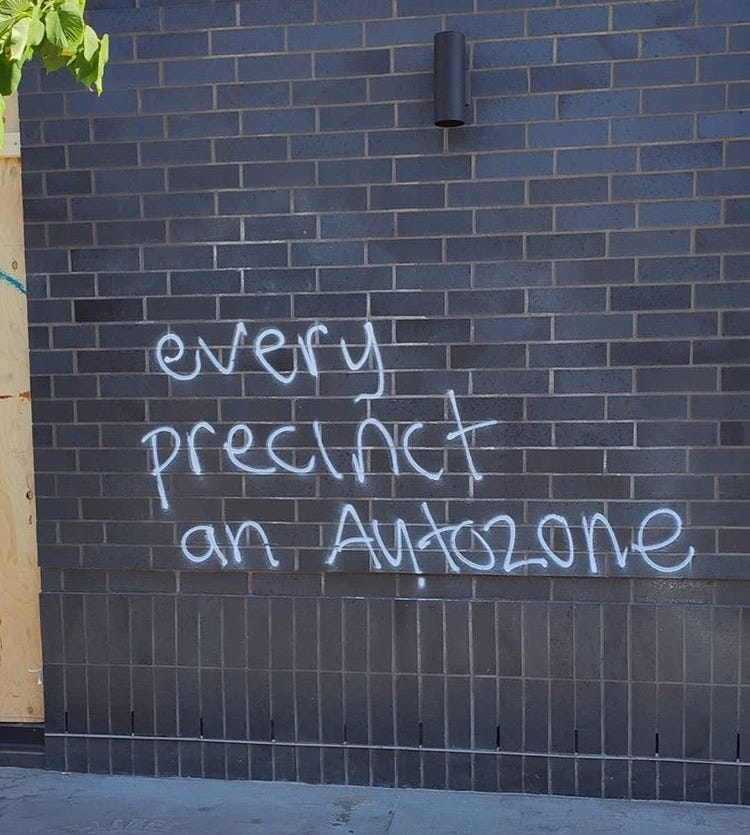 every
precinct
an Autozone